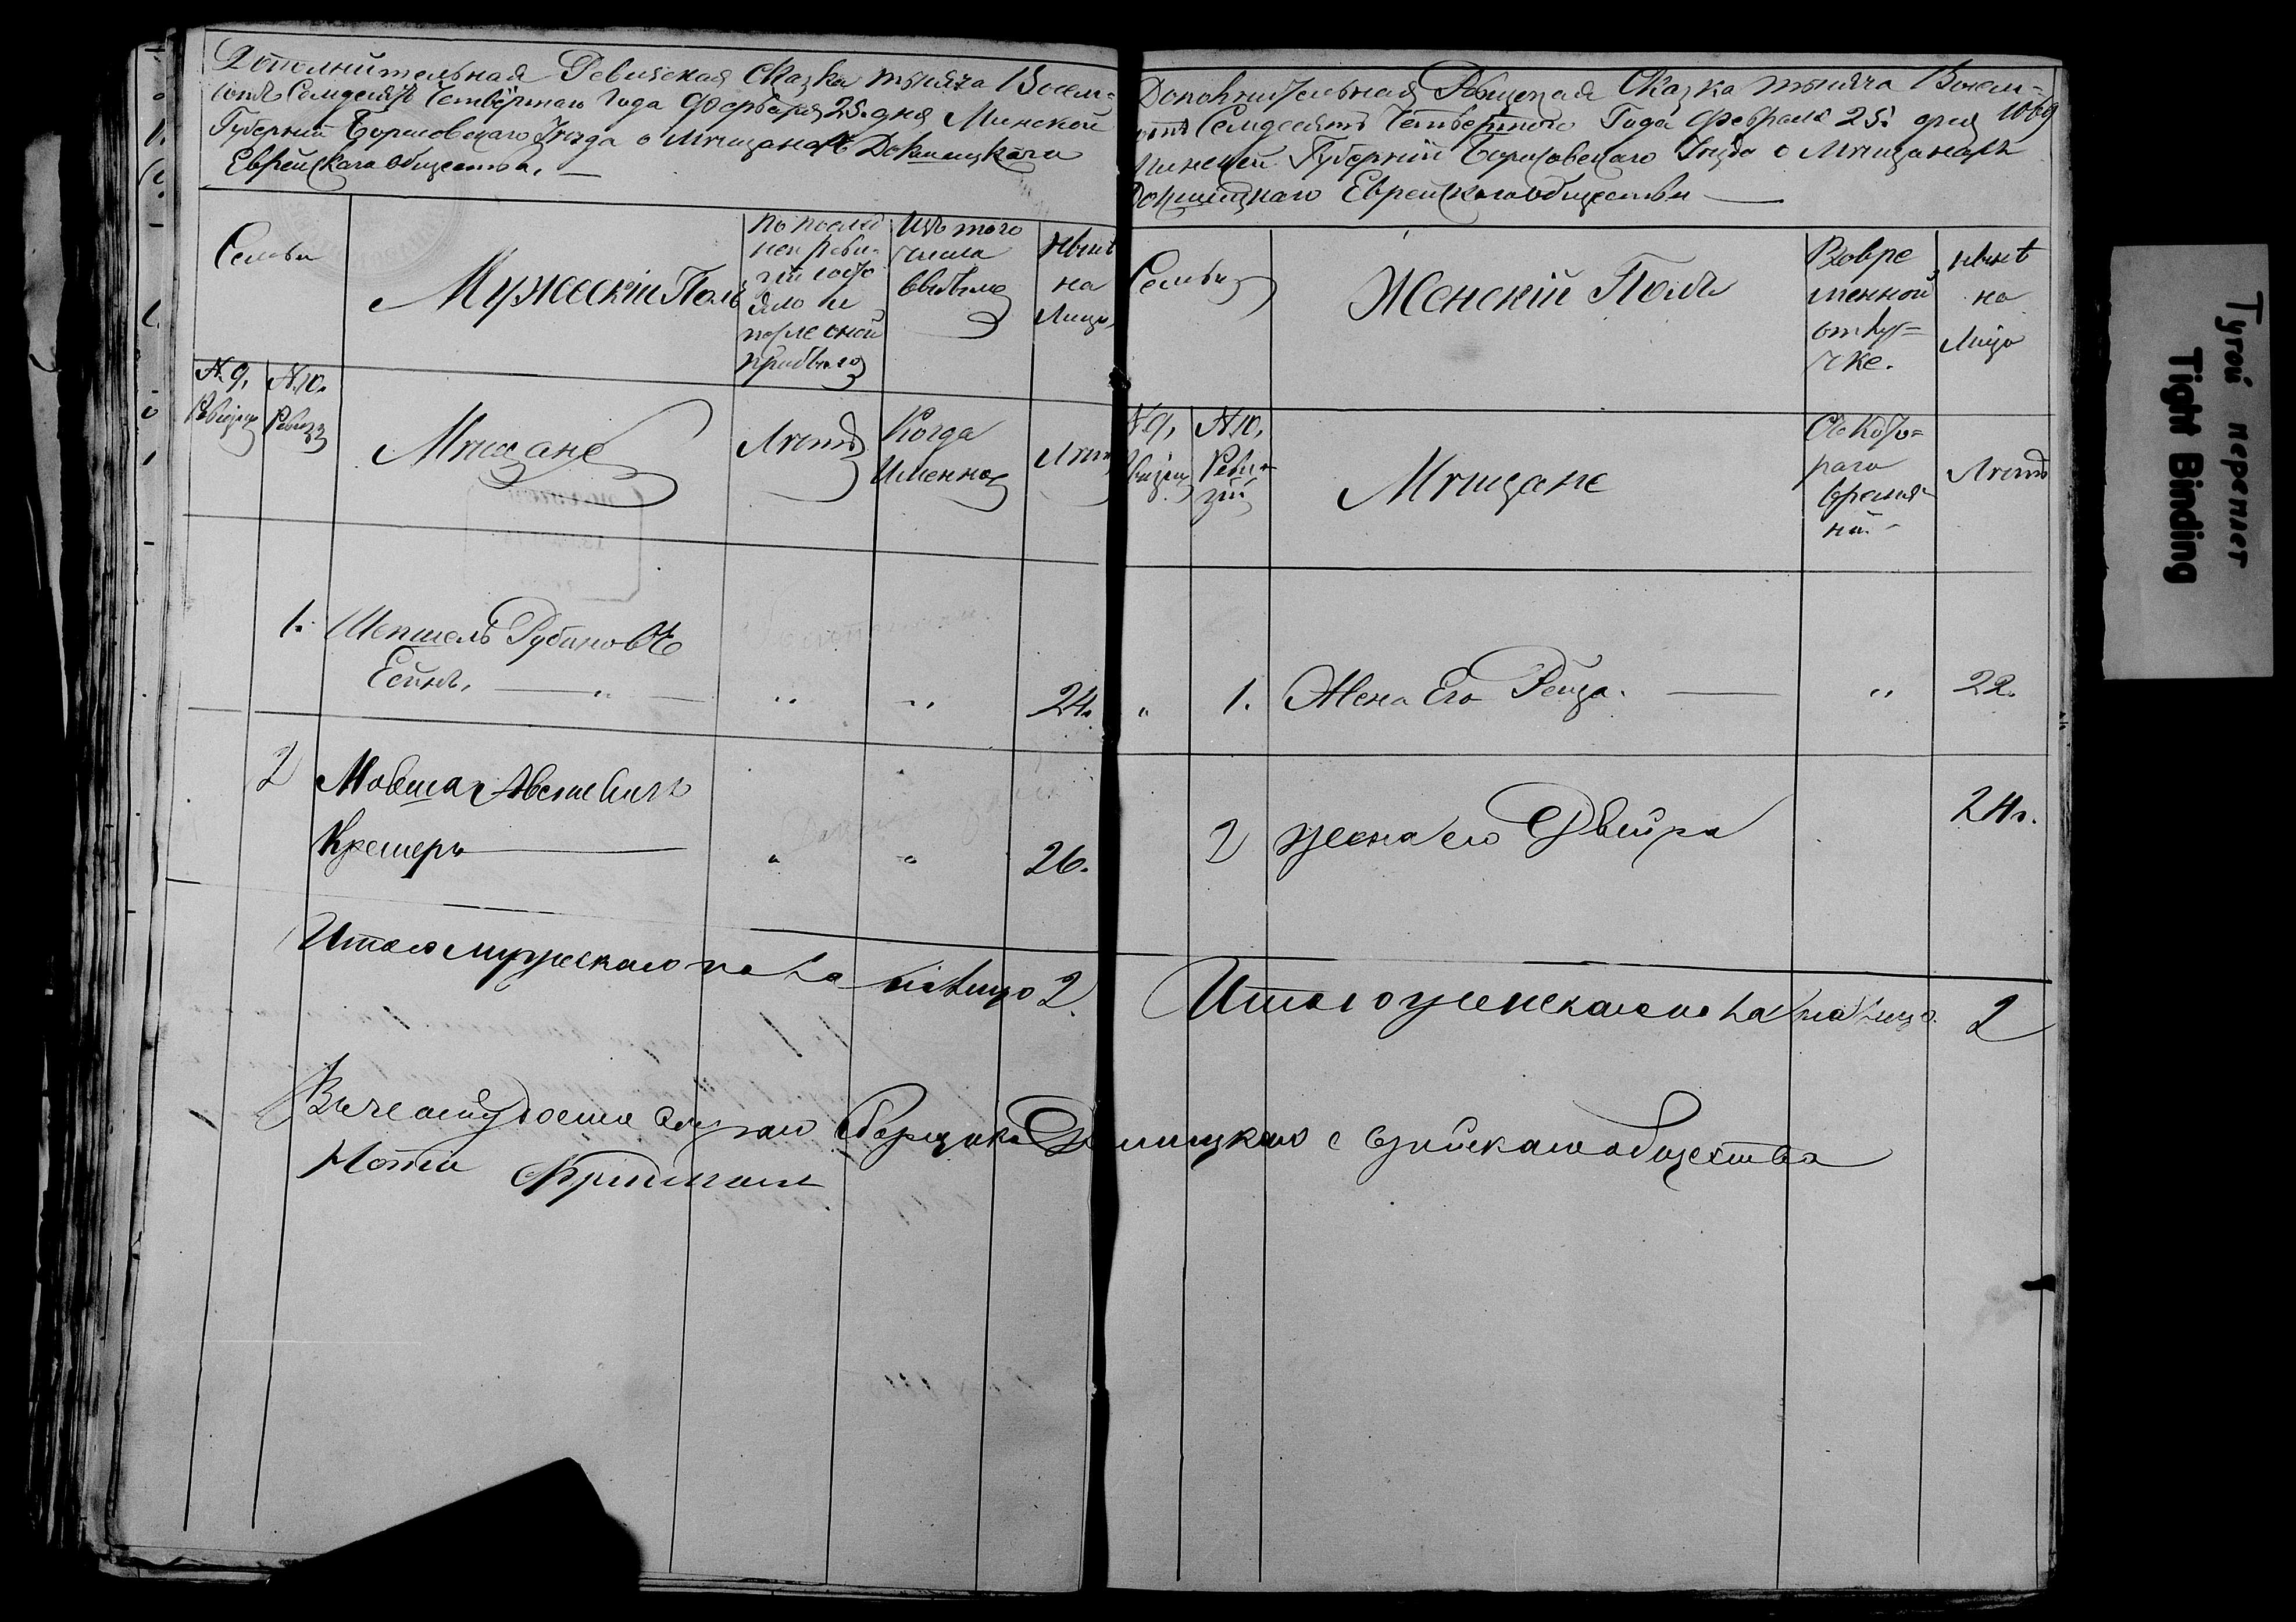 Дополнительная Ревизская Сказка тысяча Восем-
сотъ Семдесятъ Четвёртаго Года Февраля 25. дня Минской
Губерніи Борисовскаго Уѣзда о Мѣщанахъ Докшицкаго
Еврейскаго общества. —
Семьи
Мужескій Полъ
по послѣд
ней реви-
зіи состо
яло и
после оной
прибыло
Изъ того
числа
выбыло
Нынѣ
на
Лицо
№ 9.
Ревизіи
№ 10.
Ревизіи
Мѣщане
Лѣтъ
Когда
Именно
Лѣтъ
1. Шепшель Рубиновъ
Ейнъ. — „ — „ „ 24.
2 Мовша Авсеевичъ
Крешеръ — „ „ 26.
Итого мужескаго пола на лицо 2.
Дополнительная Ревизская Сказка тысяча Восем-
сотъ Семдесятъ Четвертого Года Февраля 25. дня 1069
Минской Губерніи Борисовскаго Уѣзда о Мѣщанахъ
Докшицкаго Еврейскаго общества —
Семьи
Женскій Полъ
Вовре
менной
отлу-
чке.
нынѣ
на
Лицо
№ 9.
Ревизіи
№ 10.
Реви-
зіи
Мѣщане
Съ кото-
раго
времи-
ни.
Лѣтъ
„ 1. Жена Его Рейза. — „ 22.
2 жена его Двейра 24 г.
Итого женскаго пола на лицо. 2
сборщика Докшицкаго Еврейскаго общества
Фридманъ
Тугой переплет
Tight Binding